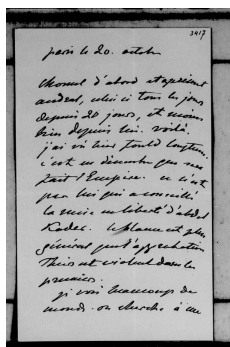 3417
paris le 20 octobre
Chomel d'abord et à présent
andral, celui-ci tous les jours
depuis 20 jours, et moins
bien depuis lui. voilà.
j'ai vu hier Fould longtems.
c'est un dimanche que
fait l'Empire. ce n'est
pas lui qui a conseillé
la mise en liberté d'abdel
Kader. le blame est plus
général que l'approbation
Thiers est violent dans le
premier.
je vois beaucoup de
monde. on cherche à me